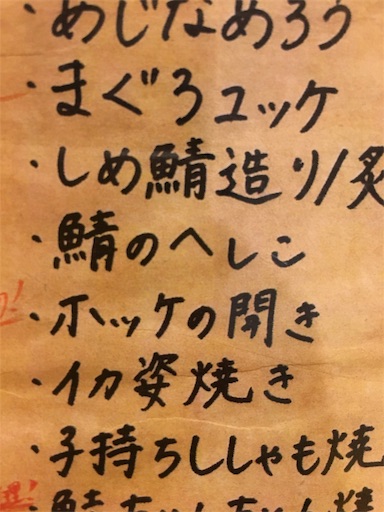 ・めじなめろう
・まぐろユッケ
・しめ鯖造り/炙
・鯖のへしこ
・ホッケの開き
・イカ姿焼き
・子持ちししゃも焼